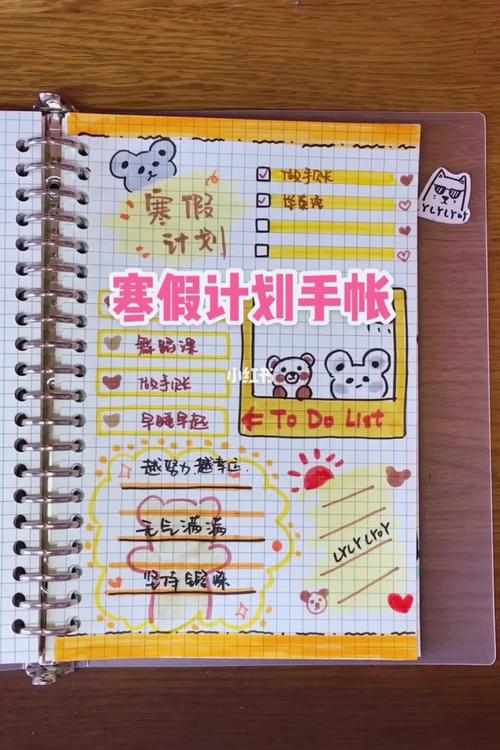 寒假
计划
做手账
学英语
寒假计划手帐
小红书
舞蹈课
做手账
早睡早起
To Do List
越努力越幸运.
元气满满
坚持锻炼
LYLYLYOY
YLYLYOY